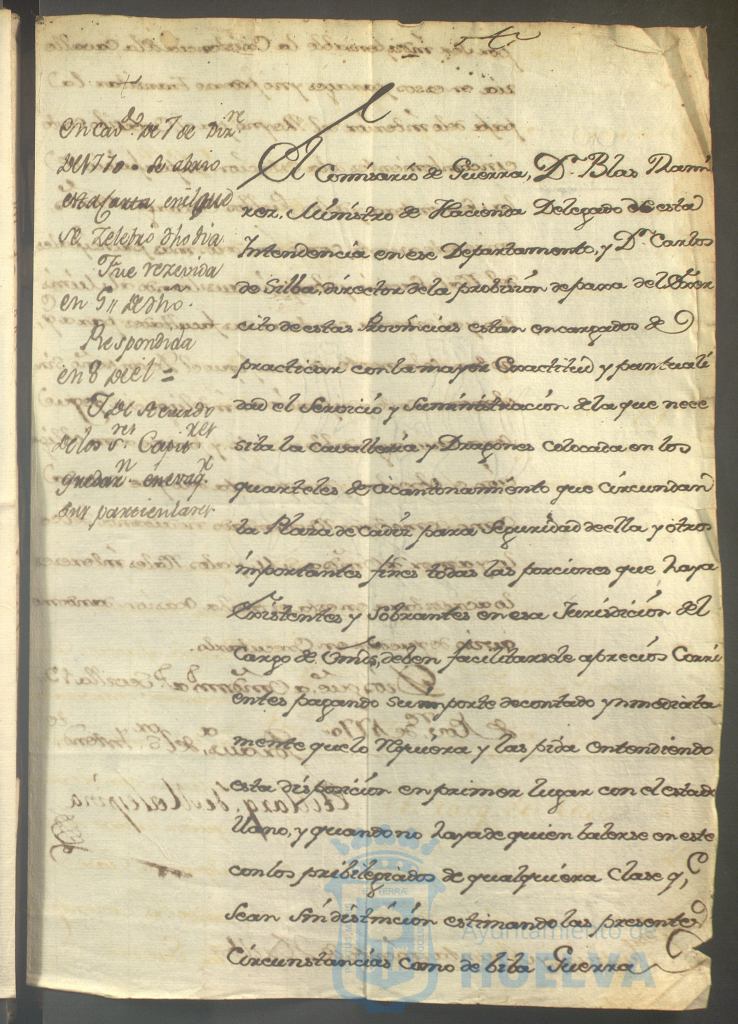 en cavdo. de 7 de Dizre
de 1770. se abrio
esta Carta, en el que
se zelebró dho dia
Fue rezevida
en 5,, de dho.
Respondida
en 8 de el =
de Acuerdo
de los Sres. Capitres
quedan en
sus particulares
El Comisario de Guerra, Dn. Blas Rami
rez, Ministro de Hacienda Delegado de esta
Intendencia en ese Departamento, y Dn. Carlos
de Silba, director de la probision de paxa del Exer
cito de estas Provincias estan encargados de
practicar con la mayor Exactitud y puntuali
dad el Servicio y Suministracion de la que nece
sita la Cavalleria y Dragones colocada en los
quarteles de acantonamiento que circundan
la Plaza de Cadiz para Seguridad de ella y otros
importantes fines todas las porciones que haya
Existentes y Sobrantes en esa Jurisdicion del
Cargo de Vmds, deben facilitarsele a precios Corri
entes pagando su importe de contado y ynmediata
mente que lo requiera y las pida entendiendo
esta disposicion en primer lugar con el estado
llano, y quando no haya de quien balerse en este
con los pribilegiados de qualquiera Clase q,e
Sean sin distincion estimando las presentes
Circunstancias como de biba Guerra
Ayuntamiento de
HUELVA